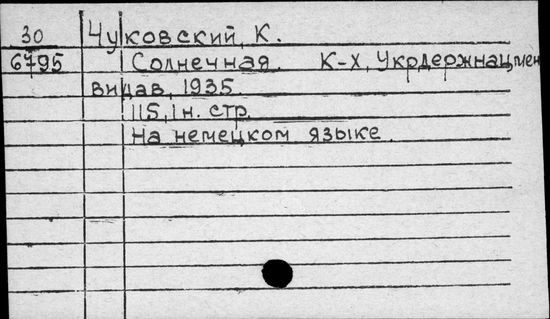 30 Чуковский, К.
6795 Солнечная. К-Х, Укрдержнацмен
видав, 1935.
115, 1 н. стр.
На немецком языке.